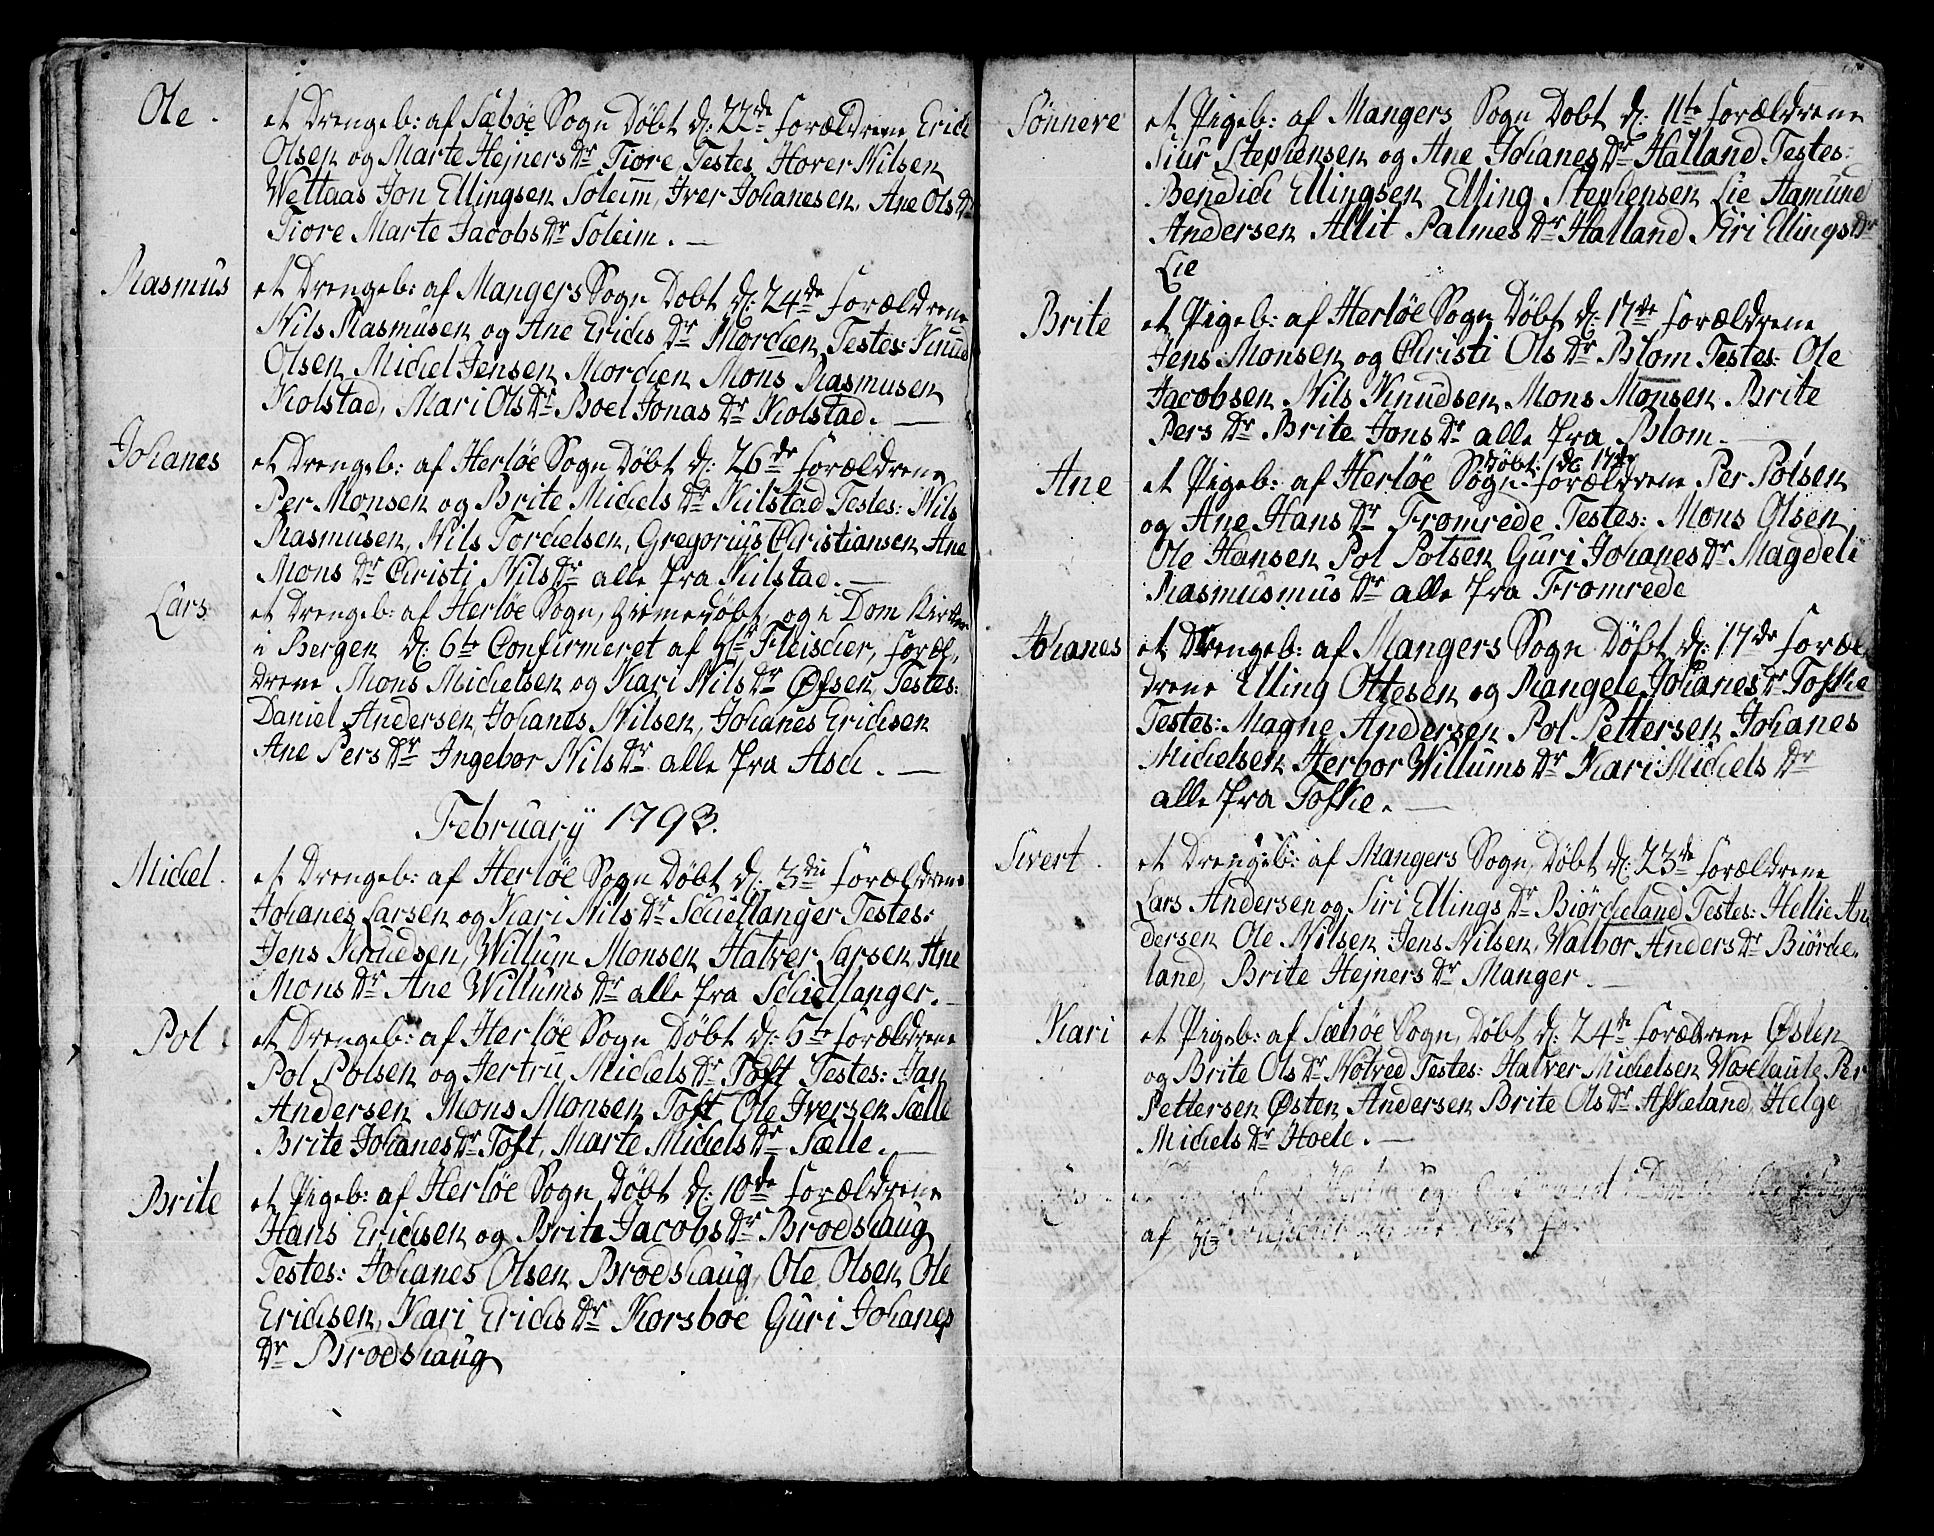 Ole. et Drengeb: af Sæbøe Sogn Døbt d: 22de forældrene Erick
Olsen og Marte Hejners Dr Tiore Testes Hover Nilsen
Wettaas Jon Ellingsen Soleim, Iver Johanesen, Ane Ols Dr
Tiore Marte Jacobs Dr Soleim. —
Rasmus et Drengeb: af Mangers Sogn Døbt d: 24de forældrene
Nils Rasmusen og Ane Ericks Dr Mordien Testes: Knud
Olsen Mickel Jensen Mordien Mons Rasmusen
Kolstad, Mari Ols Dr Boel Jonas Dr Kolstad. —
Johanes et Drengeb: af Herløe Sogn Døbt d: 26de forældrene
Per Monsen og Brite Mickels Dr Kilstad Testes: Nils
Rasmusen, Nils Torckelsen, Gregorius Christiansen Ane
Mons Dr Christi Nils Dr alle fra Kilstad. —
Lars et Drengeb: af Herløe Sogn, hiemedøbt, og i Dom Kirken
i Bergen d: 6te Confirmeret af Hr Fleischer, foræl,
drene Mons Mickelsen og Kari Nils Dr Testes:
Daniel Andersen, Johanes Nilsen, Johanes Ericksen
Ane Pers Dr Ingebor Nils Dr alle fra Ask. —
February 1793.
Mickel. et Drengeb: af Herløe Sogn Døbt d: 3die forældrene
Johanes Larsen og Kari Nils Dr Schiellanger Testes:
Jens Knudsen, Willum Monsen Halver Larsen Ane
Mons Dr Ane Willums Dr alle fra Schiellanger. —
Pol et Drengeb: af Herløe Sogn Døbt d: 5te forældrene
Pol Polsen og Jertru Mickels Dr Toft Testes: Jan
Andersen Mons Monsen Toft Ole Iversen Sælle
Brite Johanes Dr Toft, Marte Mickels Dr Sælle. —
Brite et Pigeb: af Herløe Sogn Døbt d: 10de forældrene
Hans Ericksen og Brite Jacobs Dr Brodshaug
Testes: Johanes Olsen Brodshaug, Ole Olsen Ole
Ericksen, Kari Ericks Dr Korsbøe Guri Johanes
Dr Brodshaug
Sønneve et Pigeb: af Mangers Sogn Døbt d: 11te forældrene
Siur Stephensen og Ane Johanes Dr Halland Testes:
Bendick Ellingsen Elling Stephensen Lie Aamund
Andersen Allit Palmes Dr Halland Siri Ellings Dr
Lie
Brite et Pigeb: af Herløe Sogn Døbt d: 17de forældrene
Jens Monsen og Christi Ols Dr Blom Testes: Ole
Jacobsen Nils Knudsen Mons Monsen Brite
Pers Dr Brite Jons Dr alle fra Blom. —
Døbt: d: 17de
Ane et Pigeb: af Herløe Sogn forældrene Per Polsen
og Ane Hans Dr Fromrede Testes: Mons Olsen
Ole Hansen Pol Polsen Guri Johanes Dr Magdeli
Rasmusmus Dr alle fra Fromrede
Johanes et Drengeb: af Mangers Sogn Døbt d: 17de foræl
drene Elling Ottesen og Rangele Johanes Dr Toske
Testes: Magne Andersen Pol Pettersen Johanes
Mickelsen Herbor Willums Dr Kari Mickels Dr
alle fra Toske. —
Sivert. et Drengeb: af Mangers Sogn Døbt d: 23de forældrene
Lars Andersen og Siri Ellings Dr Biørckeland Testes: Hellie An
dersen Ole Nilsen Jens Nilsen, Walbor Anders Dr Biørcke,
land, Brite Hejners Dr Manger. —
Kari et Pigeb: af Sæbøe Sogn Døbt d: 24de forældrene Østen
og Brite Ols Dr Notved Testes: Halver Mickelsen Per
Pettersen Østen Andersen Brite Ols Dr Askeland, Helge
Mickels Dr Hoele. —
af Herløe Sogn
af Hr